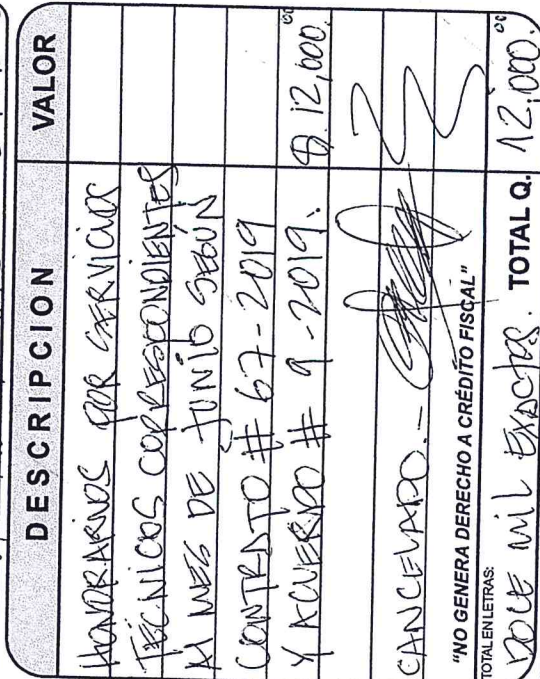 DESCRIPCION VALOR
HONORARIOS POR SERVICIOS
TECNICOS CORRESPONDIENTES
AL MES DE JUNIO SEGÚN
CONTRATO # 67-2019
Y ACUERDO # 9-2019. Q. 12,000.00
CANCELADO.-
"NO GENERA DERECHO A CRÉDITO FISCAL"
TOTAL EN LETRAS:
DOCE MIL EXACTOS. TOTAL Q. 12,000.00